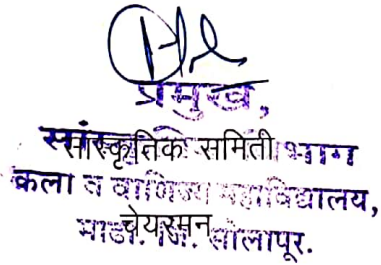 प्रमुख,
सांस्कृतिक विभाग
सांस्कृतिक समिती
कला व वाणिज्य महाविद्यालय,
चेयरमन
माढा. जि. सोलापूर.